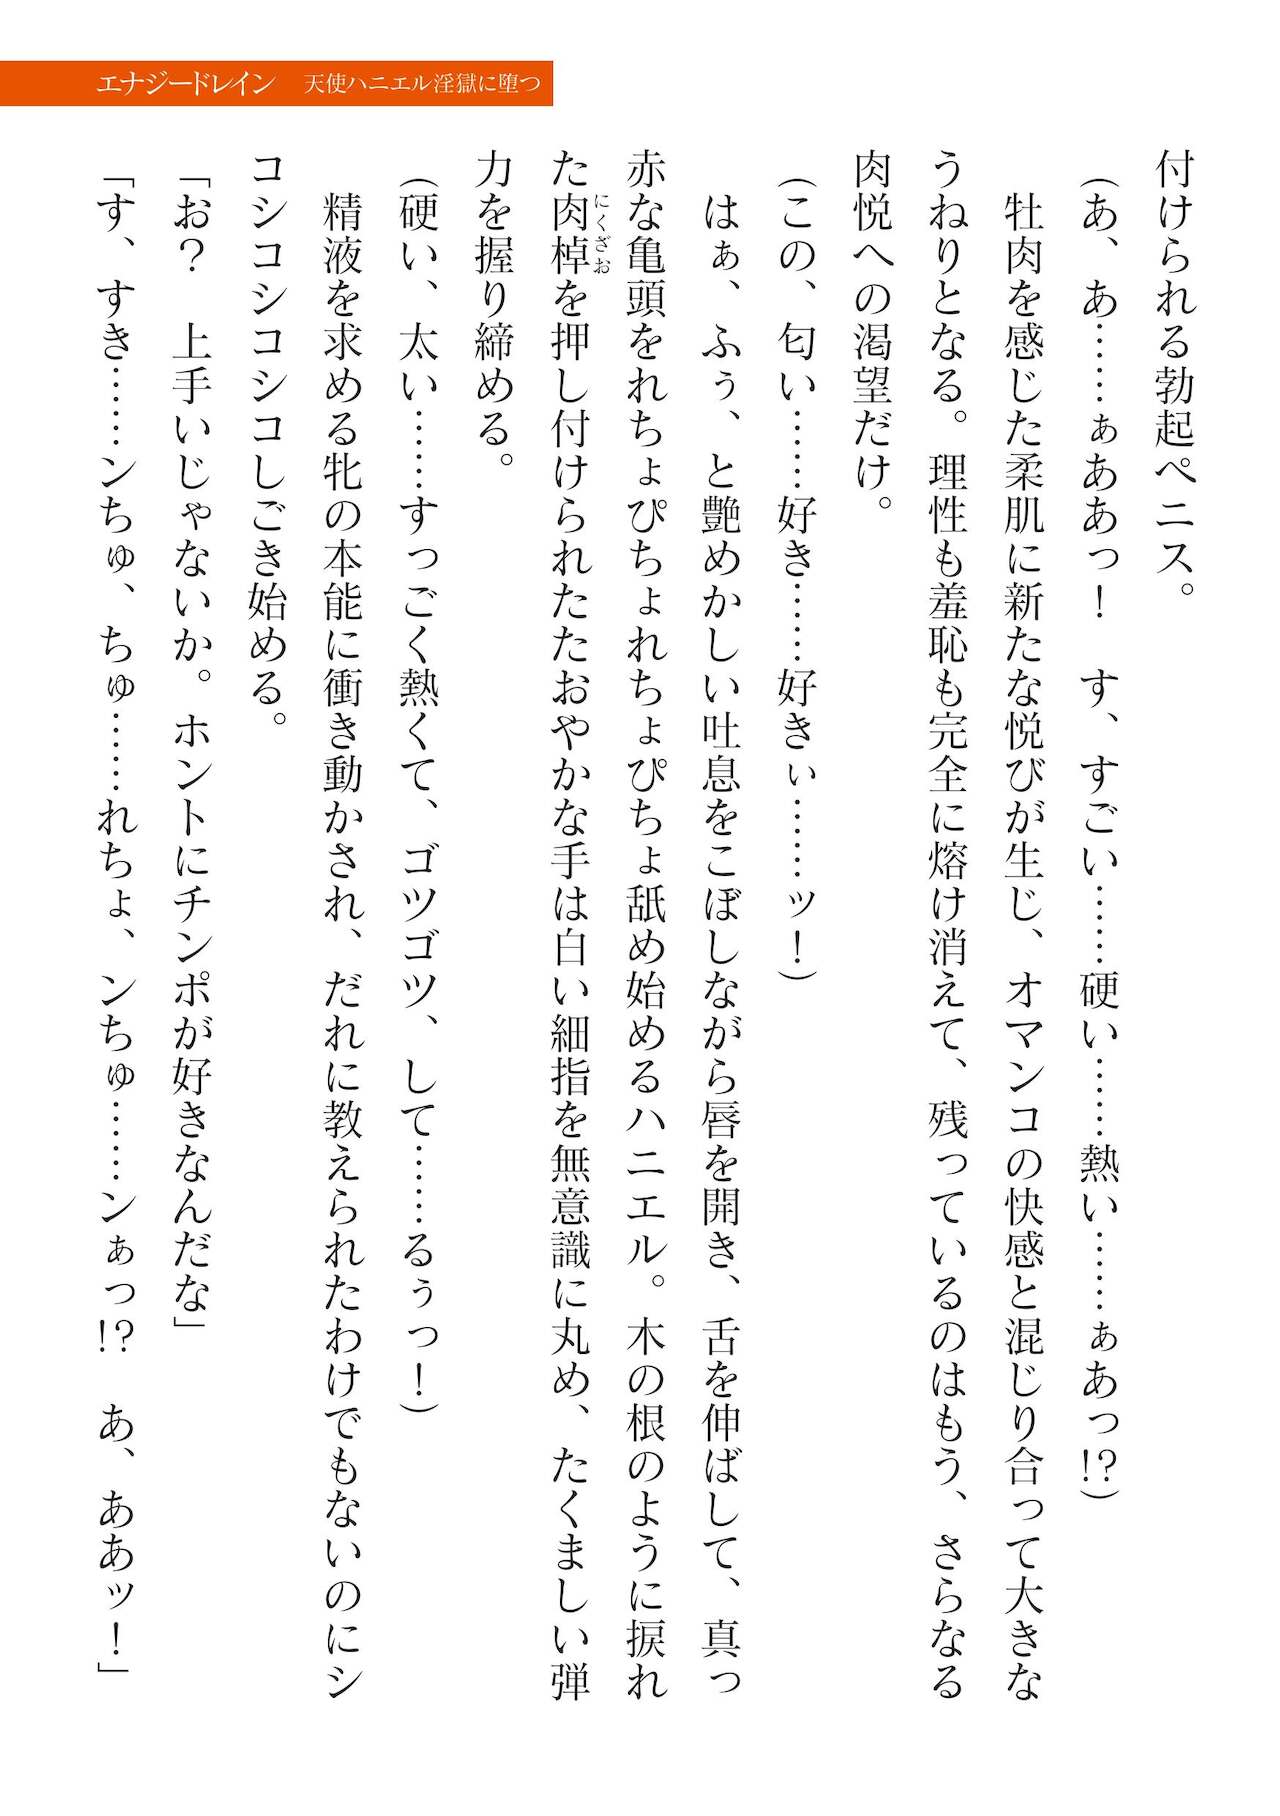 エナジードレイン 天使ハニエル淫獄に堕つ
付けられる勃起ペニス。
(あ、あ……ぁああっ！　す、すごい……硬い……熱い……ぁあっ!?)
　牡肉を感じた柔肌に新たな悦びが生じ、オマンコの快感と混じり合って大きな
うねりとなる。理性も羞恥も完全に熔け消えて、残っているのはもう、さらなる
肉悦への渇望だけ。
(この、匂い……好き……好きぃ……ッ！)
　はぁ、ふぅ、と艶めかしい吐息をこぼしながら唇を開き、舌を伸ばして、真っ
赤な亀頭をれちょぴちょれちょぴちょ舐め始めるハニエル。木の根のように捩れ
た肉棹を押し付けられたたおやかな手は白い細指を無意識に丸め、たくましい弾
にくざお
力を握り締める。
(硬い、太い……すっごく熱くて、ゴツゴツ、して……るぅっ！)
　精液を求める牝の本能に衝き動かされ、だれに教えられたわけでもないのにシ
コシコシコシコしごき始める。
「お？　上手いじゃないか。ホントにチンポが好きなんだな」
「す、すき……ンちゅ、ちゅ……れちょ、ンちゅ……ンぁっ!?　あ、ああッ！」